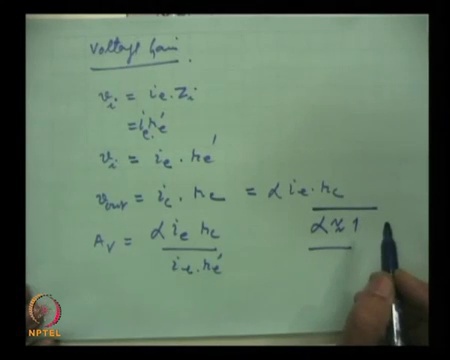 Voltage Gain.
v_i = i_e . Z_i
= i_e . r_e'
v_i = i_e . r_e'
v_out = i_c . r_c = α i_e . r_c
A_v = α i_e r_c / i_e . r_e'
α ≈ 1
NPTEL